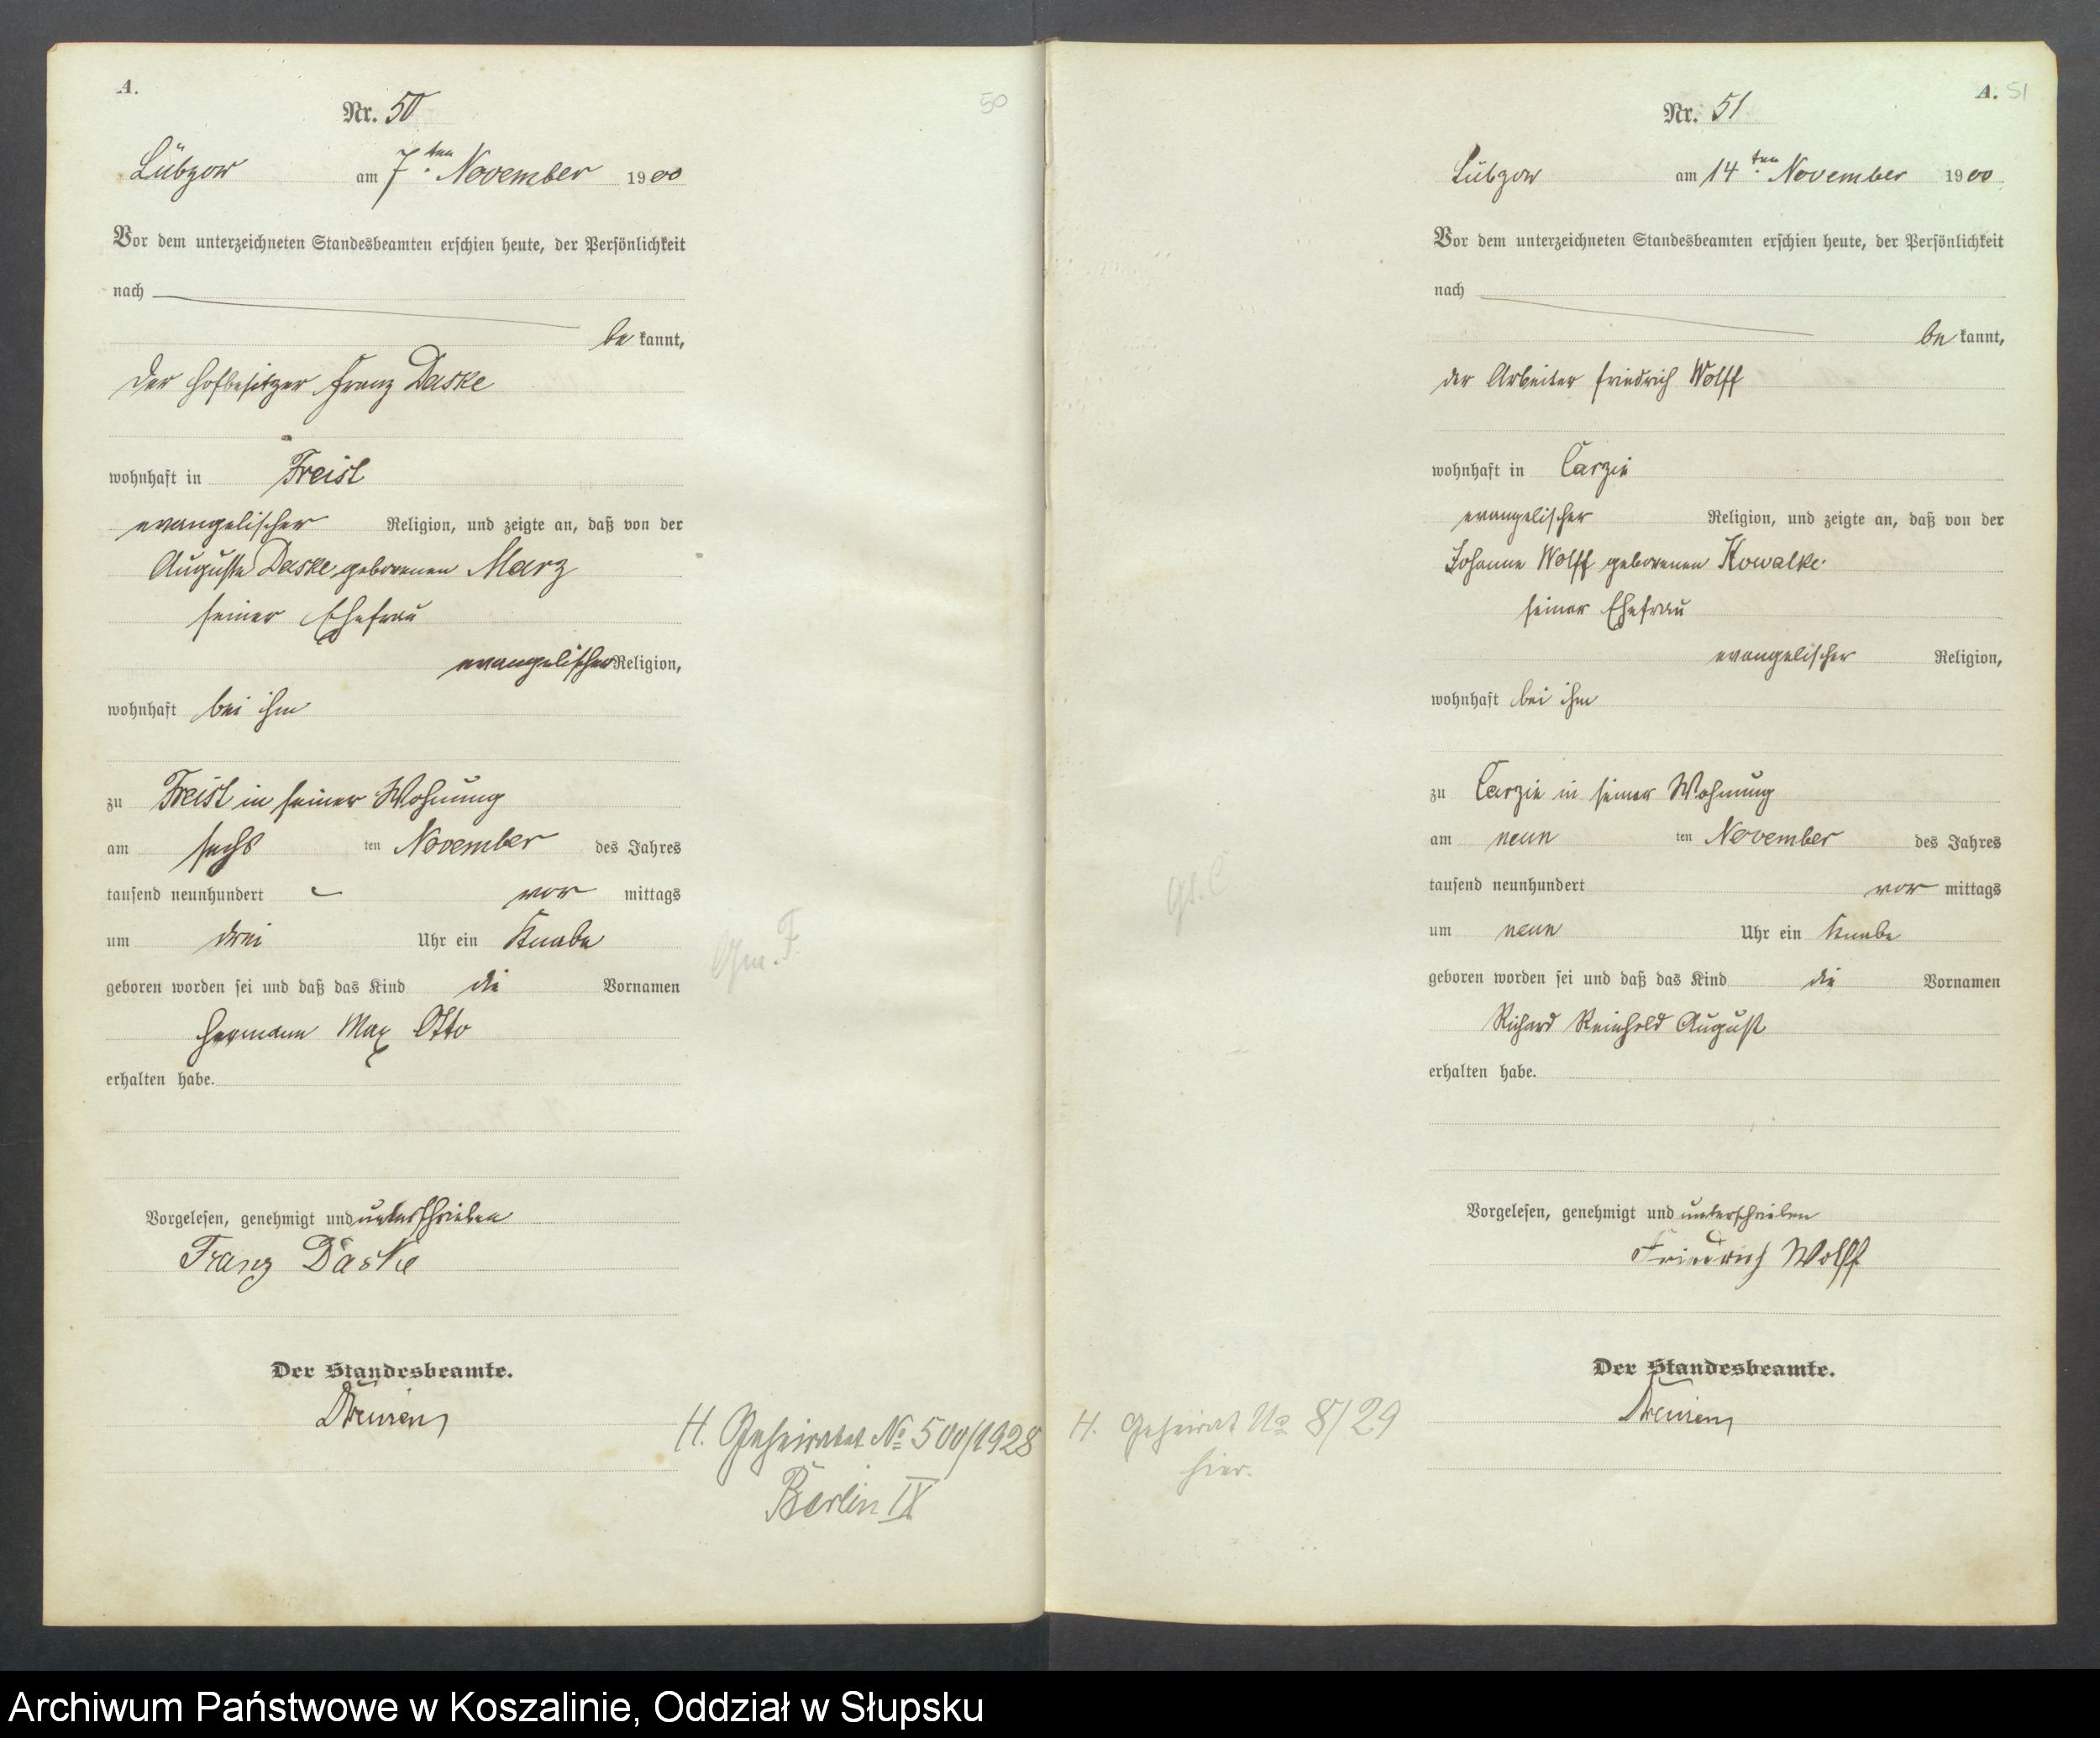 A.
Nr. 50
50
Lübzow am 7ten November 1900
Vor dem unterzeichneten Standesbeamten erschien heute, der Persönlichkeit
nach
be kannt,
der Hofbesitzer Franz Daske
wohnhaft in Freist
evangelischer Religion, und zeigte an, daß von der
Auguste Daske, geborenen Marz
seiner Ehefrau
evangelischer Religion,
wohnhaft bei ihm
zu Freist in seiner Wohnung
am sechs ten November des Jahres
tausend neunhundert vor mittags
um drei Uhr ein Knabe
geboren worden sei und daß das Kind die Vornamen
Hermann Max Otto
erhalten habe.
Vorgelesen, genehmigt und unterschrieben
Franz Daske
Der Standesbeamte.
H. Geheiratet No 500/1928
Berlin IX
A. 51
Nr. 51
Lübzow am 14ten November 1900
Vor dem unterzeichneten Standesbeamten erschien heute, der Persönlichkeit
nach
be kannt,
der Arbeiter Friedrich Wolff
wohnhaft in Carzin
evangelischer Religion, und zeigte an, daß von der
Johanne Wolff geborenen Kowalke
seiner Ehefrau
evangelischer Religion,
wohnhaft bei ihm
zu Carzin in seiner Wohnung
am neun ten November des Jahres
tausend neunhundert vor mittags
um neun Uhr ein Knabe
geboren worden sei und daß das Kind die Vornamen
Richard Reinhold August
erhalten habe.
Vorgelesen, genehmigt und unterschrieben
Friedrich Wolff
Der Standesbeamte.
H. Geheirat No 8/29
hier.
Archiwum Państwowe w Koszalinie, Oddział w Słupsku